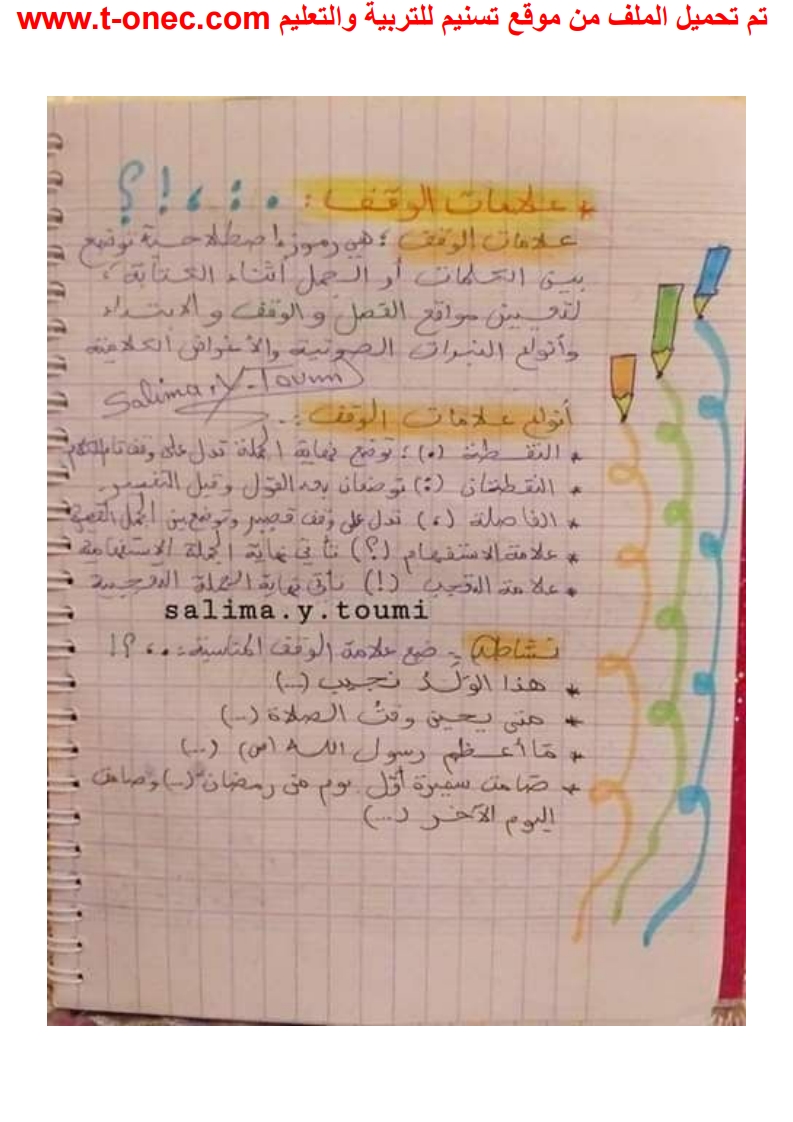 تم تحميل الملف من موقع تسنيم للتربية والتعليم www.t-onec.com
* علامات الوقف : . : ، ! ؟
علامات الوقف : هي رموز اصطلاحية توضع
بين الكلمات أو الجمل أثناء الكتابة ،
لتعيين مواقع الفصل والوقف والابتداء
وأنواع النبرات الصوتية والأغراض الكلامية
Salima.Y.Toumi
أنواع علامات الوقف :
* النقطة (.) : توضع نهاية الجملة تدل على وقف تام للكلام
* النقطتان (:) توضعان بعد القول وقبل التفسير.
* الفاصلة (،) تدل على وقف قصير وتوضع بين الجمل القصيرة
* علامة الاستفهام (؟) تأتي نهاية الجملة الاستفهامية
* علامة التعجب (!) تأتي نهاية الجملة التعجبية
salima.y.toumi
نشاط : ضع علامة الوقف المناسبة : . ، ؟ !
* هذا الولدُ نجيب (...)
* متى يحين وقتُ الصلاة (...)
* مَا أعظم رسول الله (ص) (...)
* صَامت سميرة أوّل يوم من رمضان (...) وصامت
اليوم الآخر (...)